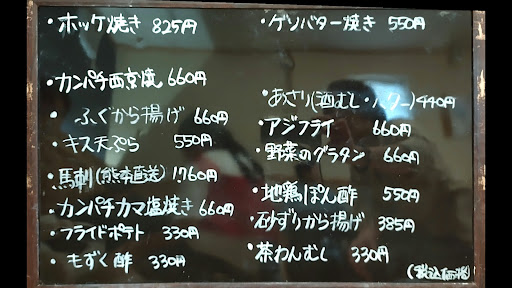 ・ホッケ焼き 825円
・カンパチ西京焼 660円
・ふぐから揚げ 660円
・キス天ぷら 550円
・馬刺(熊本直送) 1760円
・カンパチカマ塩焼き 660円
・フライドポテト 330円
・もずく酢 330円
・ゲソバター焼き 550円
・あさり(酒むし・バター) 440円
・アジフライ 660円
・野菜のグラタン 660円
・地鶏ぽん酢 550円
・砂ずりから揚げ 385円
・茶わんむし 330円
(税込価格)